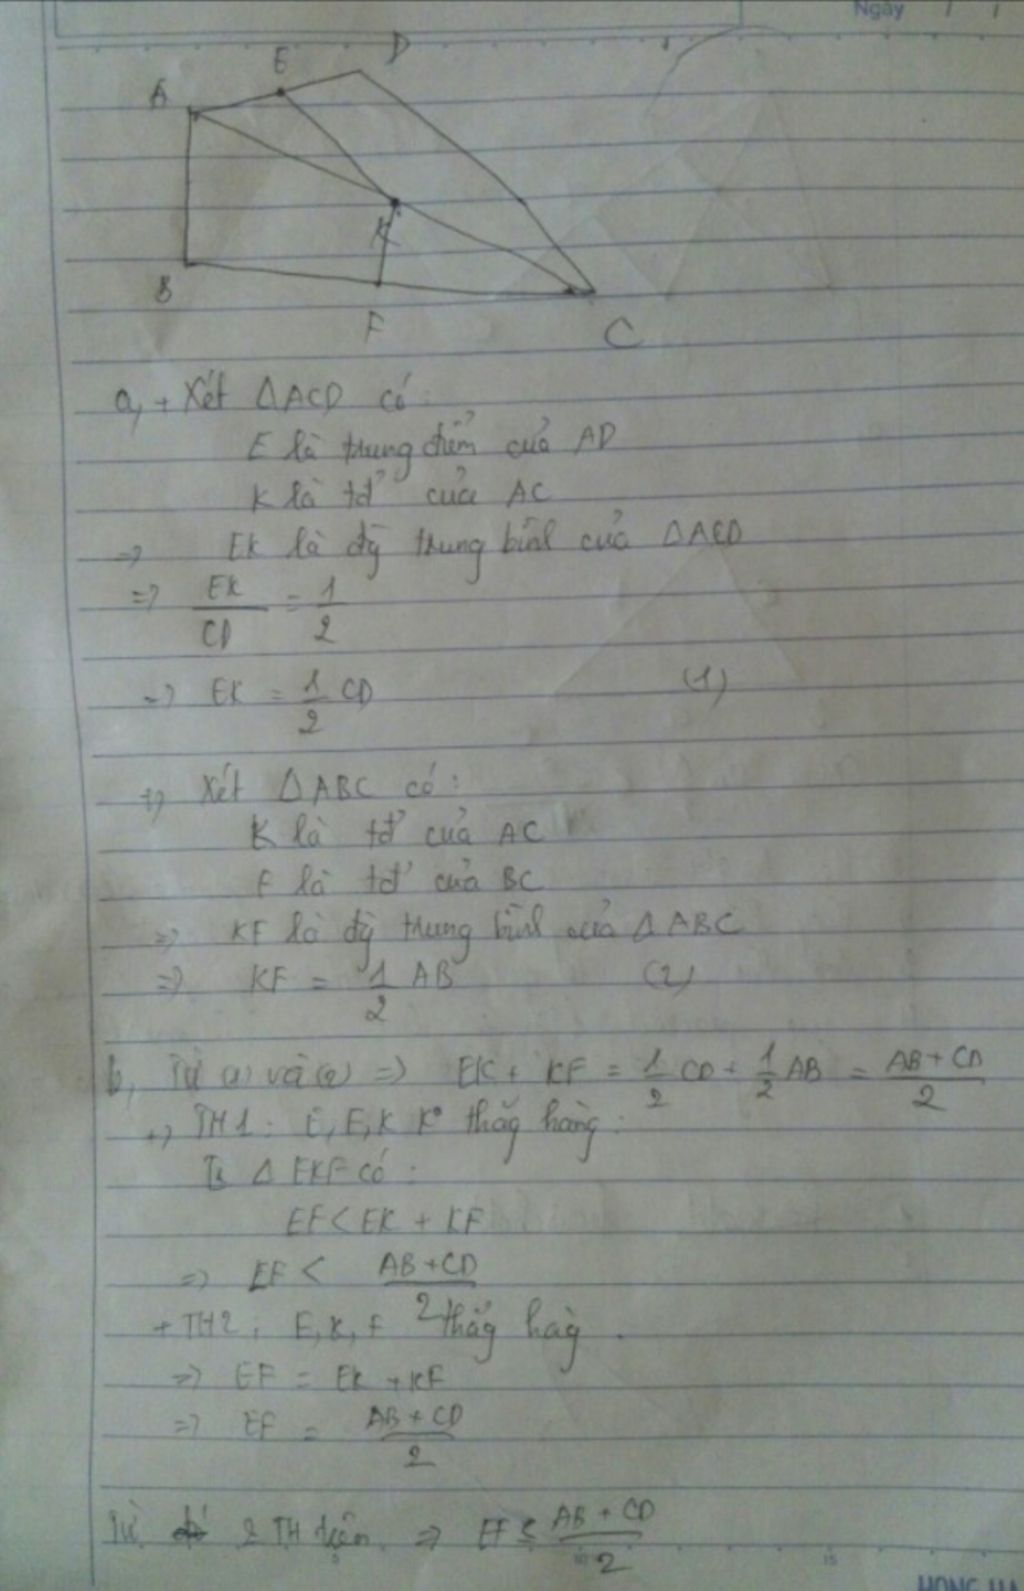 Ngày / /
E D
A
K
B
F
C
a, + Xét ΔACD có:
E là trung điểm của AD
K là tđ' của AC
=> EK là đg trung bình của ΔACD
=> EK/CD = 1/2
=> EK = 1/2 CD (1)
+, Xét ΔABC có:
K là tđ' của AC
F là tđ' của BC
=> KF là đg trung bình của ΔABC
=> KF = 1/2 AB (2)
b, Từ (1) và (2) => EK + KF = 1/2 CD + 1/2 AB = (AB + CD)/2
+, TH1: E, F, K K° thẳg hàng:
ΔEKF có:
EF < EK + KF
=> EF < (AB + CD)/2
+ TH2: E, K, F thẳg hàg.
=> EF = EK + KF
=> EF = (AB + CD)/2
Từ 2 TH trên => EF ≤ (AB + CD)/2
5 10 15
HONG HA